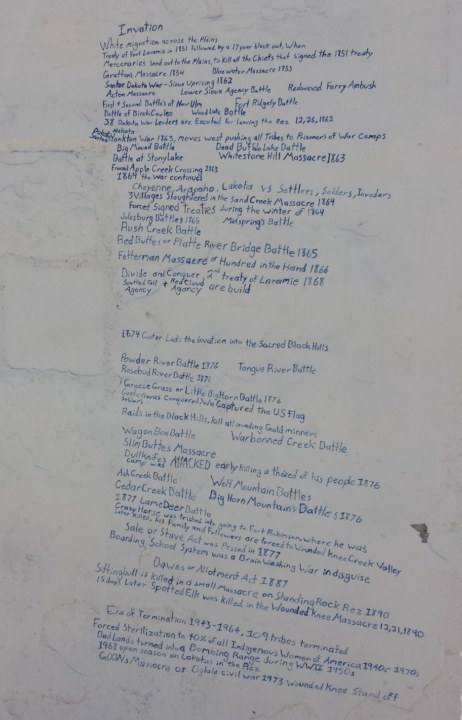 Invation
White migration across the Plains
Treaty of Fort Laramie in 1851 followed by a 17 year black out, When
Mercenaries send out to the Plains, to Kill all the Chiefs that signed the 1851 treaty
Gratttan Massacre 1854 Bluewater Massacre 1855
Santee Dakota War - Sioux Uprising 1862
Acton Massacre Lower Sioux Agency Battle Redwood Ferry Ambush
First & Second Battles of New Ulm Fort Ridgely Battle
Battle of Birch Coulee Wood Lake Battle
38 Dakota War Leaders are Executed for leaving the Rez 12,26,1862
Nakota Yankton War 1863, moves west pushing all Tribes to Prisoners of War Camps
Big Mound Battle Dead Buffalo Lake Battle
Battle at Stony Lake Whitestone Hill Massacre 1863
Apple Creek Crossing 1863
1864 the war continues
Cheyenne, Arapaho, Lakota vs Settlers, Solders, Invaders
3 Villages Slaughtered in the Sand Creek Massacre 1864
Forced Signed Treaties during the winter of 1864
Julesburg Battles 1865 Mudsprings Battle
Rush Creek Battle
Red Buttes or Platte River Bridge Battle 1865
Fetterman Massacre or Hundred in the Hand 1866
Divide and Conquer, 2nd treaty of Laramie 1868
Spotted Tail Agency + Red Cloud Agency are build
1874 Custer Leads the invation into the Sacred Black Hills
Powder River Battle 1876 Tongue River Battle
Rosebud River Battle 1876
Greasie Grass or Little Big Horn Battle 1876
Custer was Conquered, We Captured the US Flag
Raids in the Black Hills, kill all invading Gould minners
Wagon Box Battle Warbonned Creek Battle
Slim Buttes Massacre
Dullknifes camp was ATTACKED early killing a thired of his people 1876
Ash Creek Battle Wolf Mountain Battles
Cedar Creek Battle Big Horn Mountain's Battles 1876
1877 Lame Deer Battle
Crazy Horse was tricked into going to Fort Robinson, where he was
later killed, his Family and Followers are forced to Wounded Knee Creek Valley
Sale or Starve Act was Passed in 1877
Boarding School System was a Brain Washing War in disguise
Dawes or Allotment Act 1887
Sittingbull is killed in a small Massacre on Standing Rock Rez 1890
15 days Later Spotted Elk was Killed in the Wounded Knee Massacre 12,29,1890
Era of Termination 1943-1964, 109 tribes terminated
Forced Sterilization to 40% of all Indigenous Women of America 1940s-1970s
Bad Lands turned into a Bombing Range during WWII 1950s
1968 open season on Lakotas in the Rez
GOONs Massacre or Oglala civil war 1973 Wounded Knee Stand off